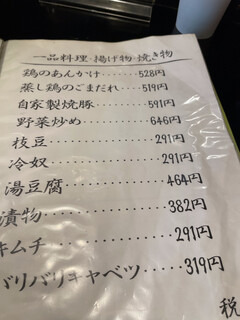 一品料理・揚げ物・焼き物
鶏のあんかけ・・・・・・528円
蒸し鶏のごまだれ・・・519円
自家製焼豚・・・・・・・591円
野菜炒め・・・・・・・・646円
枝豆・・・・・・・・・・291円
冷奴・・・・・・・・・・291円
湯豆腐・・・・・・・・・464円
漬物・・・・・・・・・・382円
キムチ・・・・・・・・・291円
バリバリキャベツ・・・・・319円
税